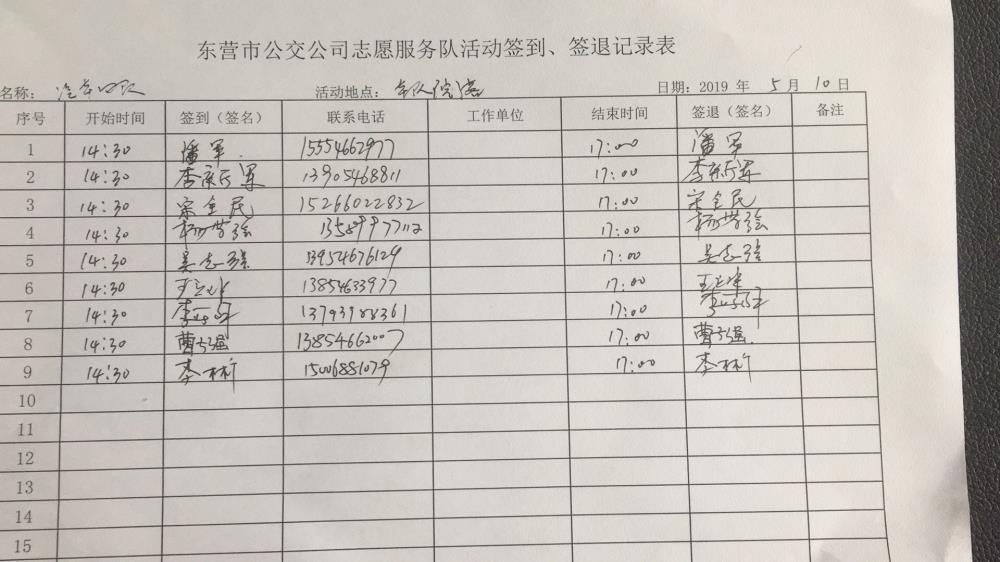 东营市公交公司志愿服务队活动签到、签退记录表
名称: 汽车四队 活动地点: 车队院落 日期: 2019 年 5 月 10 日
序号 开始时间 签到（签名） 联系电话 工作单位 结束时间 签退（签名） 备注
1 14:30 潘军 15554662977 17:00 潘军
2 14:30 李 军 13905468811 17:00 李 军
3 14:30 宋全民 15266022832 17:00 宋全民
4 14:30 杨 强 13589977112 17:00 杨 强
5 14:30 吴志强 13954676129 17:00 吴志强
6 14:30 王 13854633977 17:00 王
7 14:30 李 13793988361 17:00 李
8 14:30 曹 强 13854662007 17:00 曹 强
9 14:30 李 15006881079 17:00 李
10
11
12
13
14
15